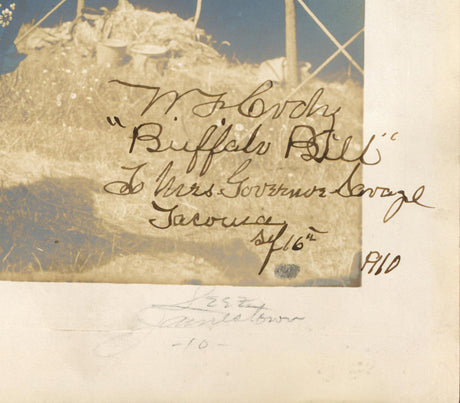 W F Cody
"Buffalo Bill"
To Mrs. Governor Savage
Tacoma
16th
1910
Jamestown
-10-